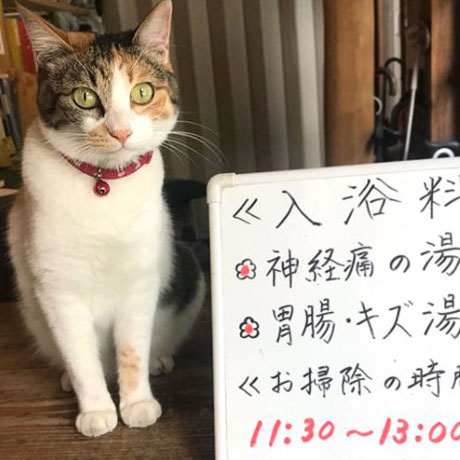 ≪入浴料
神経痛の湯
胃腸・キズ湯
≪お掃除の時
11:30～13:00